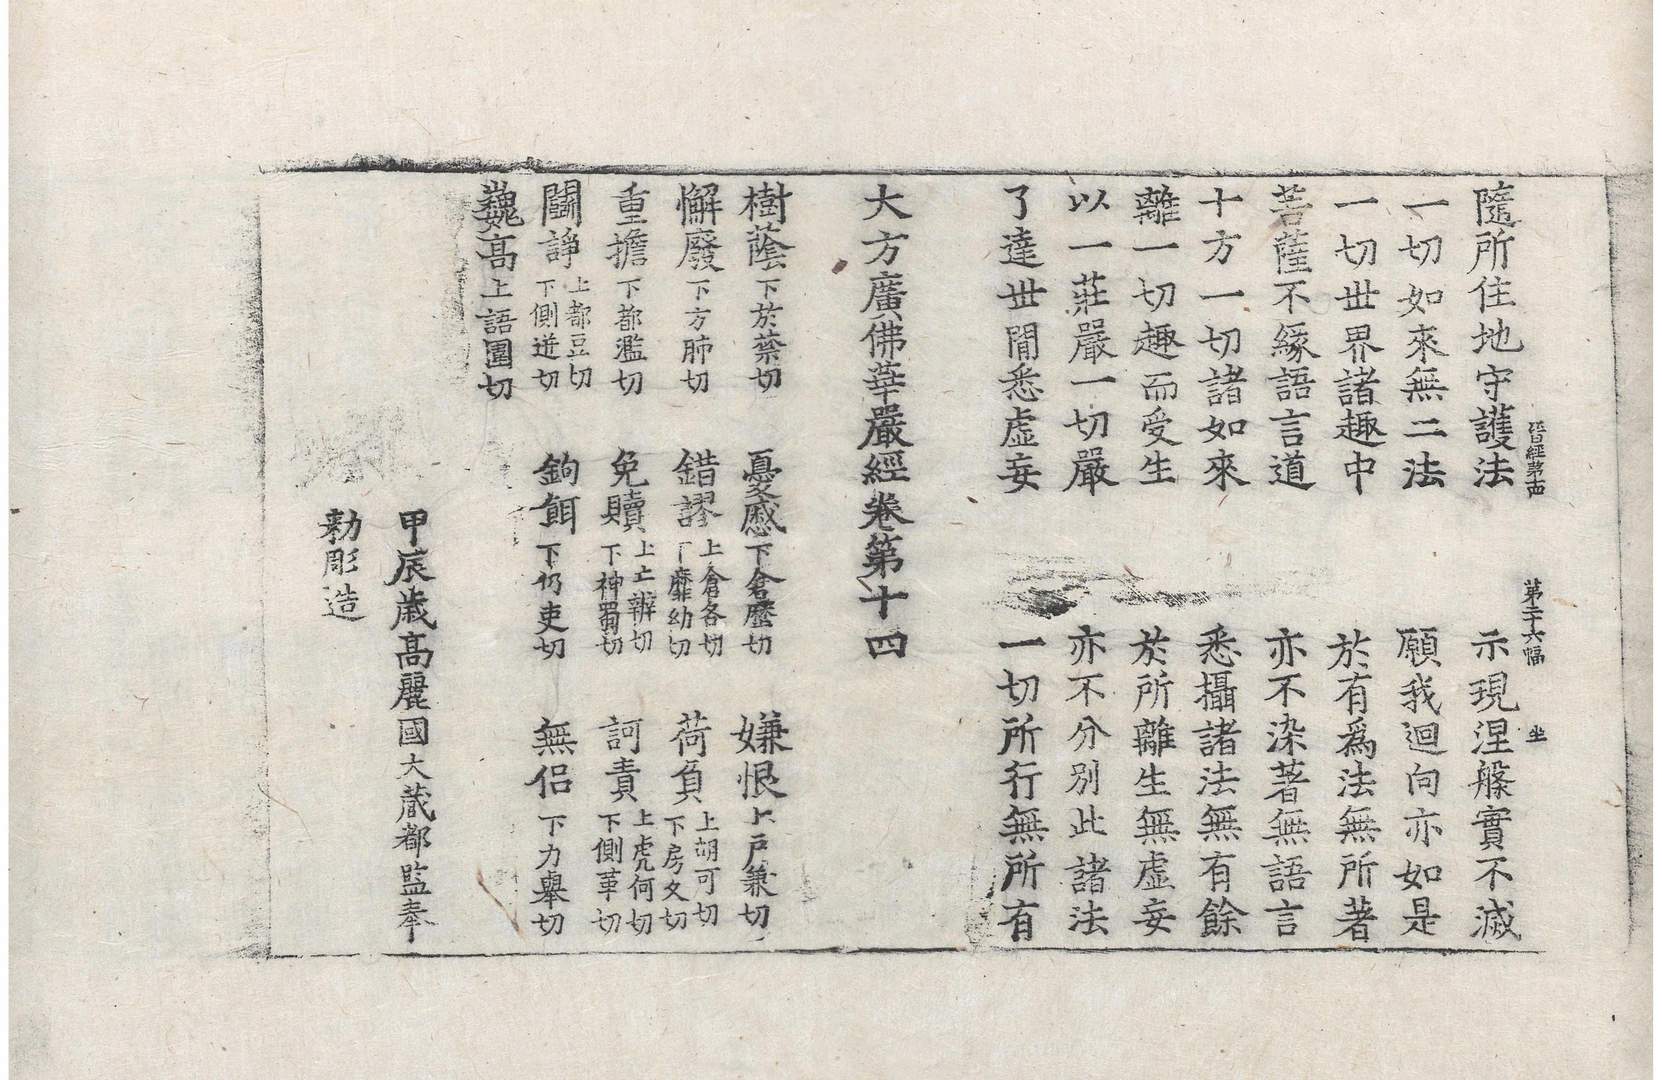 晉經第十四　第二十六幅　坐
隨所住地守護法　示現涅槃實不滅
一切如來無二法　願我迴向亦如是
一切世界諸趣中　於有爲法無所著
菩薩不緣語言道　亦不染著無語言
十方一切諸如來　悉攝諸法無有餘
離一切趣而受生　於所離生無虛妄
以一莊嚴一切嚴　亦不分別此諸法
了達世閒悉虛妄　一切所行無所有
大方廣佛華嚴經卷第十四
樹蔭下於禁切　憂慼下倉歷切　嫌恨上戶兼切
懈廢下方肺切　錯謬上倉各切下靡幼切　荷負上胡可切下房文切
重擔下都濫切　免贖上亡辨切下神蜀切　訶責上虎何切下側革切
鬪諍上都豆切下側迸切　鉤餌下仍吏切　無侶下力舉切
巍高上語圍切
甲辰歲高麗國大藏都監奉
勅彫造